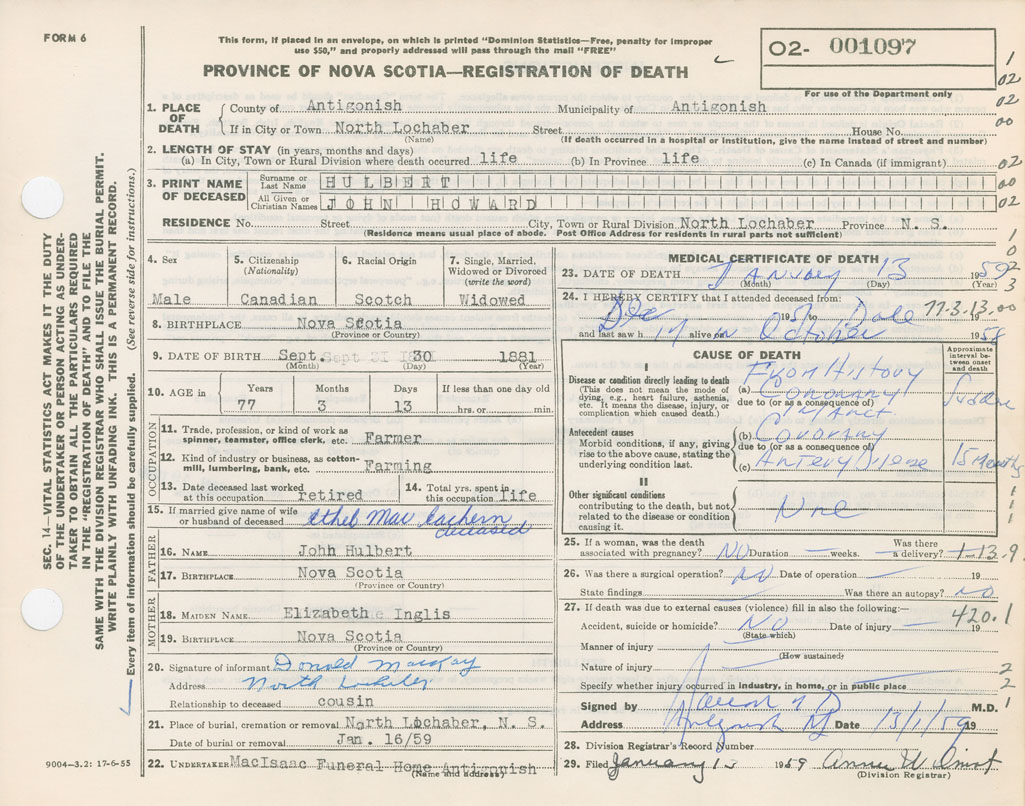 FORM 6
This form, if placed in an envelope, on which is printed "Dominion Statistics—Free, penalty for improper
use $50," and properly addressed will pass through the mail "FREE"
PROVINCE OF NOVA SCOTIA—REGISTRATION OF DEATH
O2- 001097
For use of the Department only
SEC. 14—VITAL STATISTICS ACT MAKES IT THE DUTY
OF THE UNDERTAKER OR PERSON ACTING AS UNDER-
TAKER TO OBTAIN ALL THE PARTICULARS REQUIRED
IN THE "REGISTRATION OF DEATH" AND TO FILE THE
SAME WITH THE DIVISION REGISTRAR WHO SHALL ISSUE THE BURIAL PERMIT.
WRITE PLAINLY WITH UNFADING INK. THIS IS A PERMANENT RECORD.
Every item of information should be carefully supplied. (See reverse side for instructions.)
1. PLACE OF DEATH County of Antigonish Municipality of Antigonish
If in City or Town North Lochaber Street House No.
(Name) (If death occurred in a hospital or institution, give the name instead of street and number)
2. LENGTH OF STAY (in years, months and days)
(a) In City, Town or Rural Division where death occurred life (b) In Province life (c) In Canada (if immigrant)
3. PRINT NAME OF DECEASED Surname or Last Name HULBERT
All Given or Christian Names JOHN HOWARD
RESIDENCE No. Street City, Town or Rural Division North Lochaber Province N. S.
(Residence means usual place of abode. Post Office Address for residents in rural parts not sufficient)
4. Sex Male
5. Citizenship (Nationality) Canadian
6. Racial Origin Scotch
7. Single, Married, Widowed or Divorced (write the word) Widowed
8. BIRTHPLACE Nova Scotia
(Province or Country)
9. DATE OF BIRTH Sept. 30 1881
(Month) (Day) (Year)
10. AGE in Years 77 Months 3 Days 13 If less than one day old hrs. or min.
OCCUPATION
11. Trade, profession, or kind of work as
spinner, teamster, office clerk, etc. Farmer
12. Kind of industry or business, as cotton-
mill, lumbering, bank, etc. Farming
13. Date deceased last worked at this occupation retired
14. Total yrs. spent in this occupation life
15. If married give name of wife
or husband of deceased Ethel MacEachern
deceased
FATHER
16. NAME John Hulbert
17. BIRTHPLACE Nova Scotia
(Province or Country)
MOTHER
18. MAIDEN NAME Elizabeth Inglis
19. BIRTHPLACE Nova Scotia
(Province or Country)
20. Signature of informant Donald MacKay
Address North Lochaber
Relationship to deceased cousin
21. Place of burial, cremation or removal North Lochaber, N. S.
Date of burial or removal Jan. 16/59
22. UNDERTAKER MacIsaac Funeral Home Antigonish
(Name and address)
9004—3.2: 17-6-55
MEDICAL CERTIFICATE OF DEATH
23. DATE OF DEATH January 13 1959
(Month) (Day) (Year)
24. I HEREBY CERTIFY that I attended deceased from:
Dec 195 to Date 19
77-3-13-00
and last saw h alive on October 1958
CAUSE OF DEATH
Approximate interval between onset and death
I
Disease or condition directly leading to death
(This does not mean the mode of
dying, e.g., heart failure, asthenia,
etc. It means the disease, injury, or
complication which caused death.)
From History
(a) Coronary
due to (or as a consequence of)
Infarct
Antecedent causes
Morbid conditions, if any, giving
rise to the above cause, stating the
underlying condition last.
(b) Coronary
due to (or as a consequence of)
(c) Artery Disease 15 Months
II
Other significant conditions
contributing to the death, but not
related to the disease or condition
causing it.
25. If a woman, was the death
associated with pregnancy? NO Duration — weeks. Was there a delivery?
26. Was there a surgical operation? NO Date of operation 19
State findings Was there an autopsy? NO
27. If death was due to external causes (violence) fill in also the following:—
420.1
Accident, suicide or homicide? NO Date of injury 19
(State which)
Manner of injury
(How sustained)
Nature of injury
Specify whether injury occurred in industry, in home, or in public place
Signed by M.D.
Address Antigonish NS Date 13/1/59 19
28. Division Registrar's Record Number
29. Filed January 13 1959
(Division Registrar)